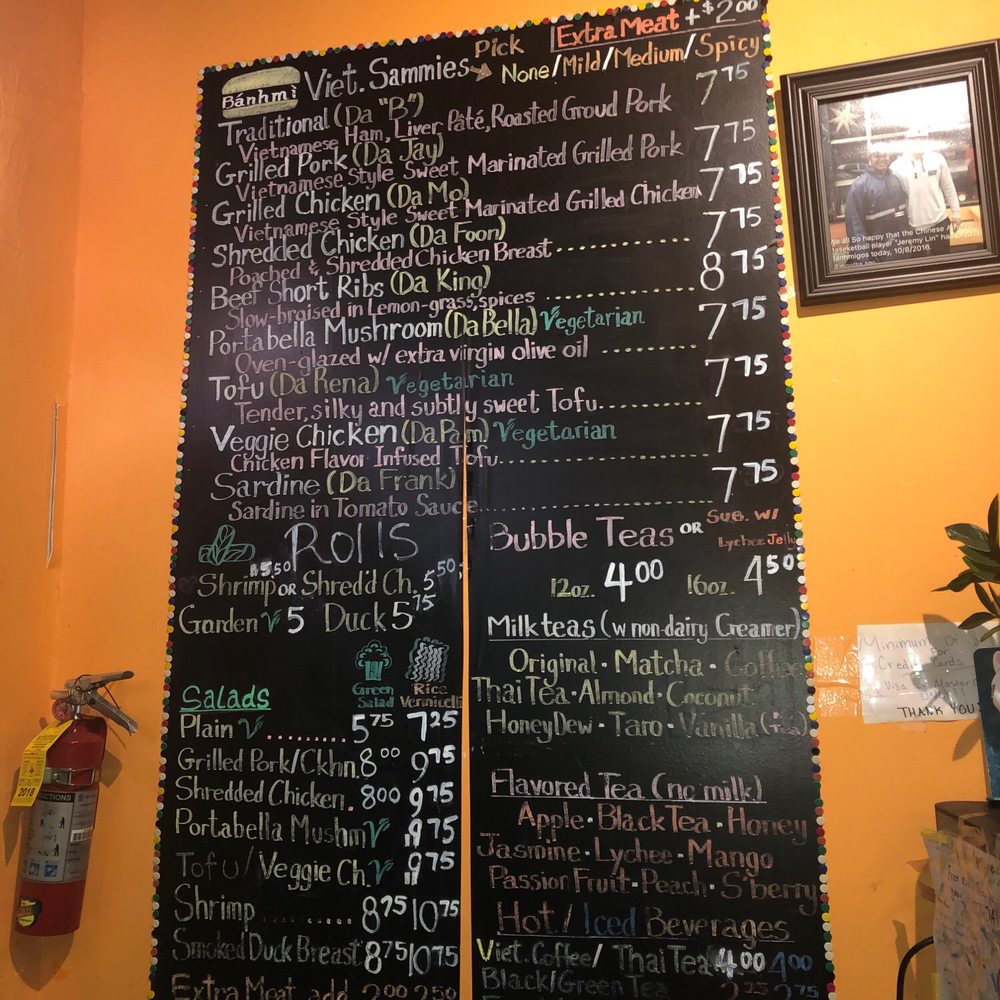 Extra Meat + $2.00
Bánhmì Viet. Sammies Pick None/Mild/Medium/Spicy
Traditional (Da "B") 7 75
Vietnamese Ham, Liver Pâté, Roasted Groud Pork
Grilled Pork (Da Jay) 7 75
Vietnamese Style Sweet Marinated Grilled Pork
Grilled Chicken (Da Mo) 7 75
Vietnamese Style Sweet Marinated Grilled Chicken
Shredded Chicken (Da Foon) 7 75
Poached & Shredded Chicken Breast
Beef Short Ribs (Da King) 8 75
Slow-braised in Lemon-grass, spices
Portabella Mushroom (Da Bella) Vegetarian 7 75
Oven-glazed w/ extra virgin olive oil
Tofu (Da Rena) Vegetarian 7 75
Tender, silky and subtly sweet Tofu
Veggie Chicken (Da Pam) Vegetarian 7 75
Chicken Flavor Infused Tofu
Sardine (Da Frank) 7 75
Sardine in Tomato Sauce
Rolls
$5.50
Shrimp OR Shred'd Ch. 5.50
Garden V 5 Duck 5 75
Green Salad
Rice Vermicelli
Salads
Plain V 5 75 7 25
Grilled Pork/Ckhn. 8 00 9 75
Shredded Chicken. 8 00 9 75
Portabella Mushm V " 9 75
Tofu/Veggie Ch. V " 9 75
Shrimp 8 75 10 75
Smoked Duck Breast 8 75 10 75
Extra Meat add 2.00 2.50
Bubble Teas OR Sub. w/ Lychee Jelly
12oz. 4 00 16oz. 4 50
Milk teas (w non-dairy Creamer)
Original • Matcha • Coffee
Thai Tea • Almond • Coconut
HoneyDew • Taro • Vanilla (tea)
Flavored Tea (no milk)
Apple • Black Tea • Honey
Jasmine • Lychee • Mango
Passion Fruit • Peach • S'berry
Hot / Iced Beverages
Viet. Coffee/ Thai Tea 4 00 4 00
Black/Green Tea 2.25 2.75
so Happy that the Chinese
Basketball player "Jeremy Lin"
today, 10/8/2016.
Minimum
for
Credit Cards
Visa
THANK YOU
2018